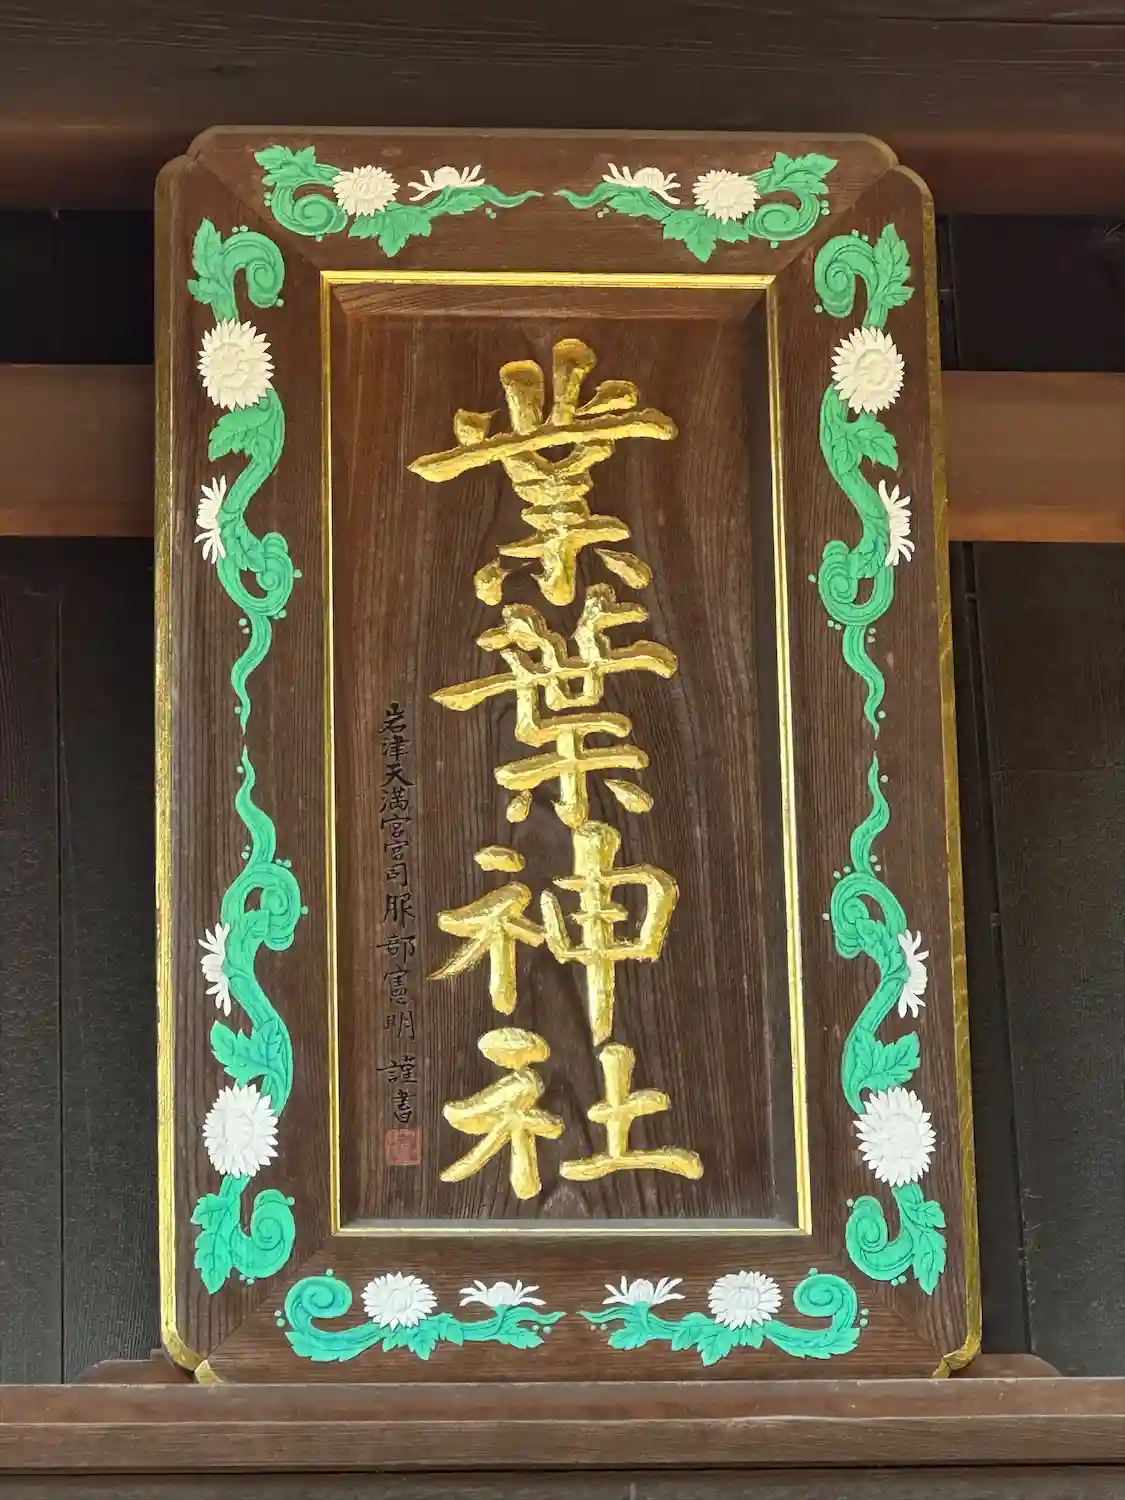 業葉神社
岩津天満宮宮司服部憲明 謹書